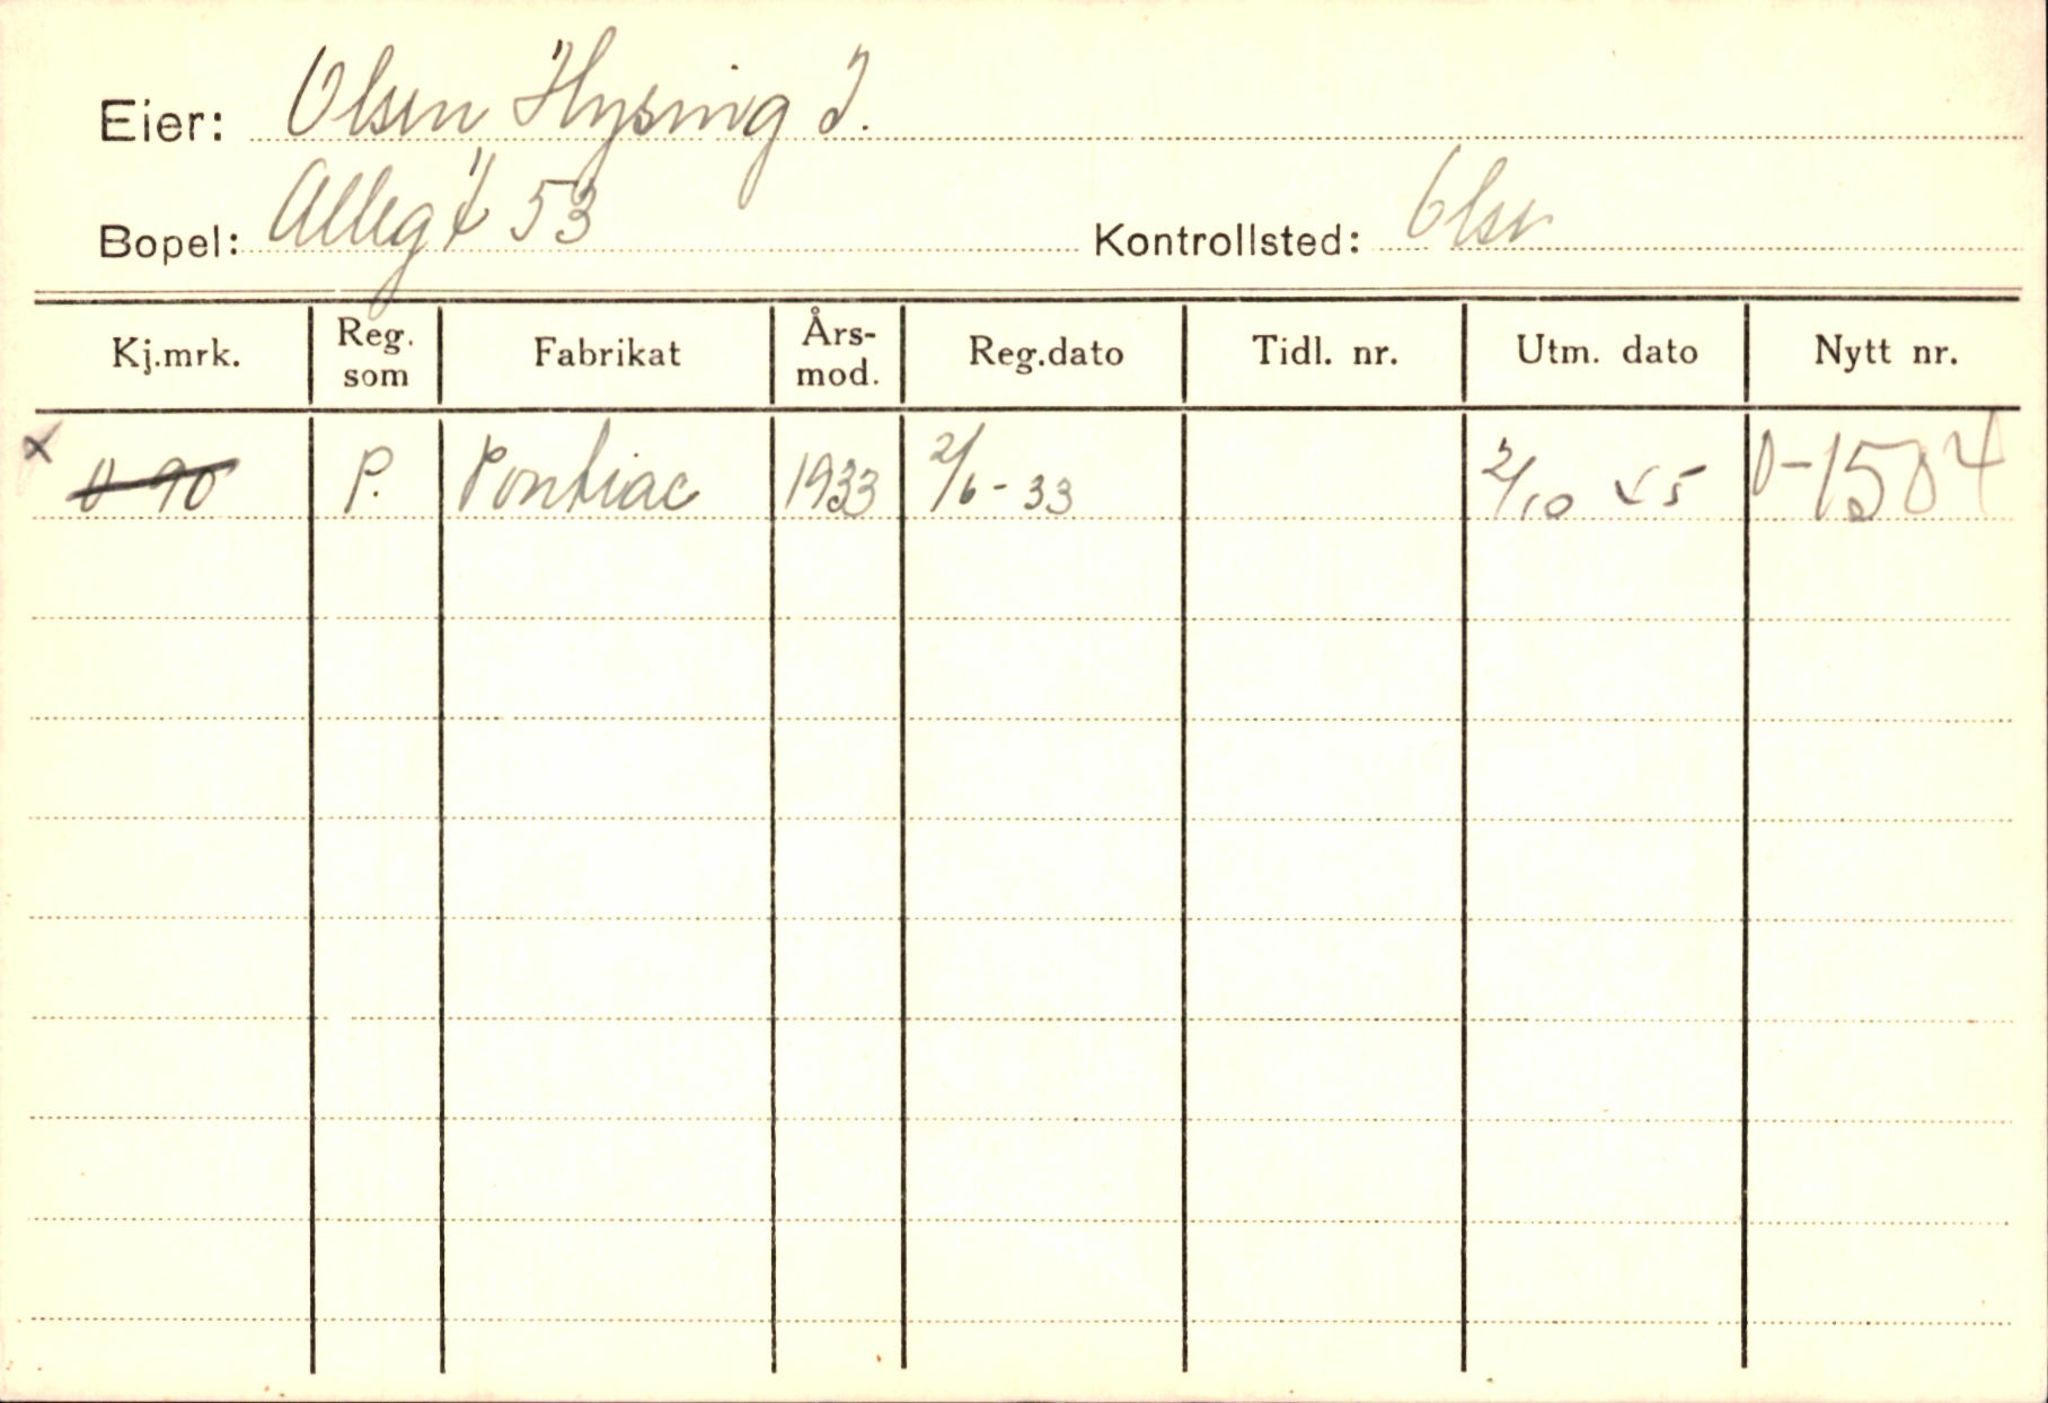 Eier: Olsen Hysing J.
Bopel: Allegt 53 Kontrollsted: Olso
Kj.mrk. Reg. som Fabrikat Års-mod. Reg.dato Tidl. nr. Utm. dato Nytt nr.
x 0-90 P. Pontiac 1933 2/6-33 2/10 45 0-1504